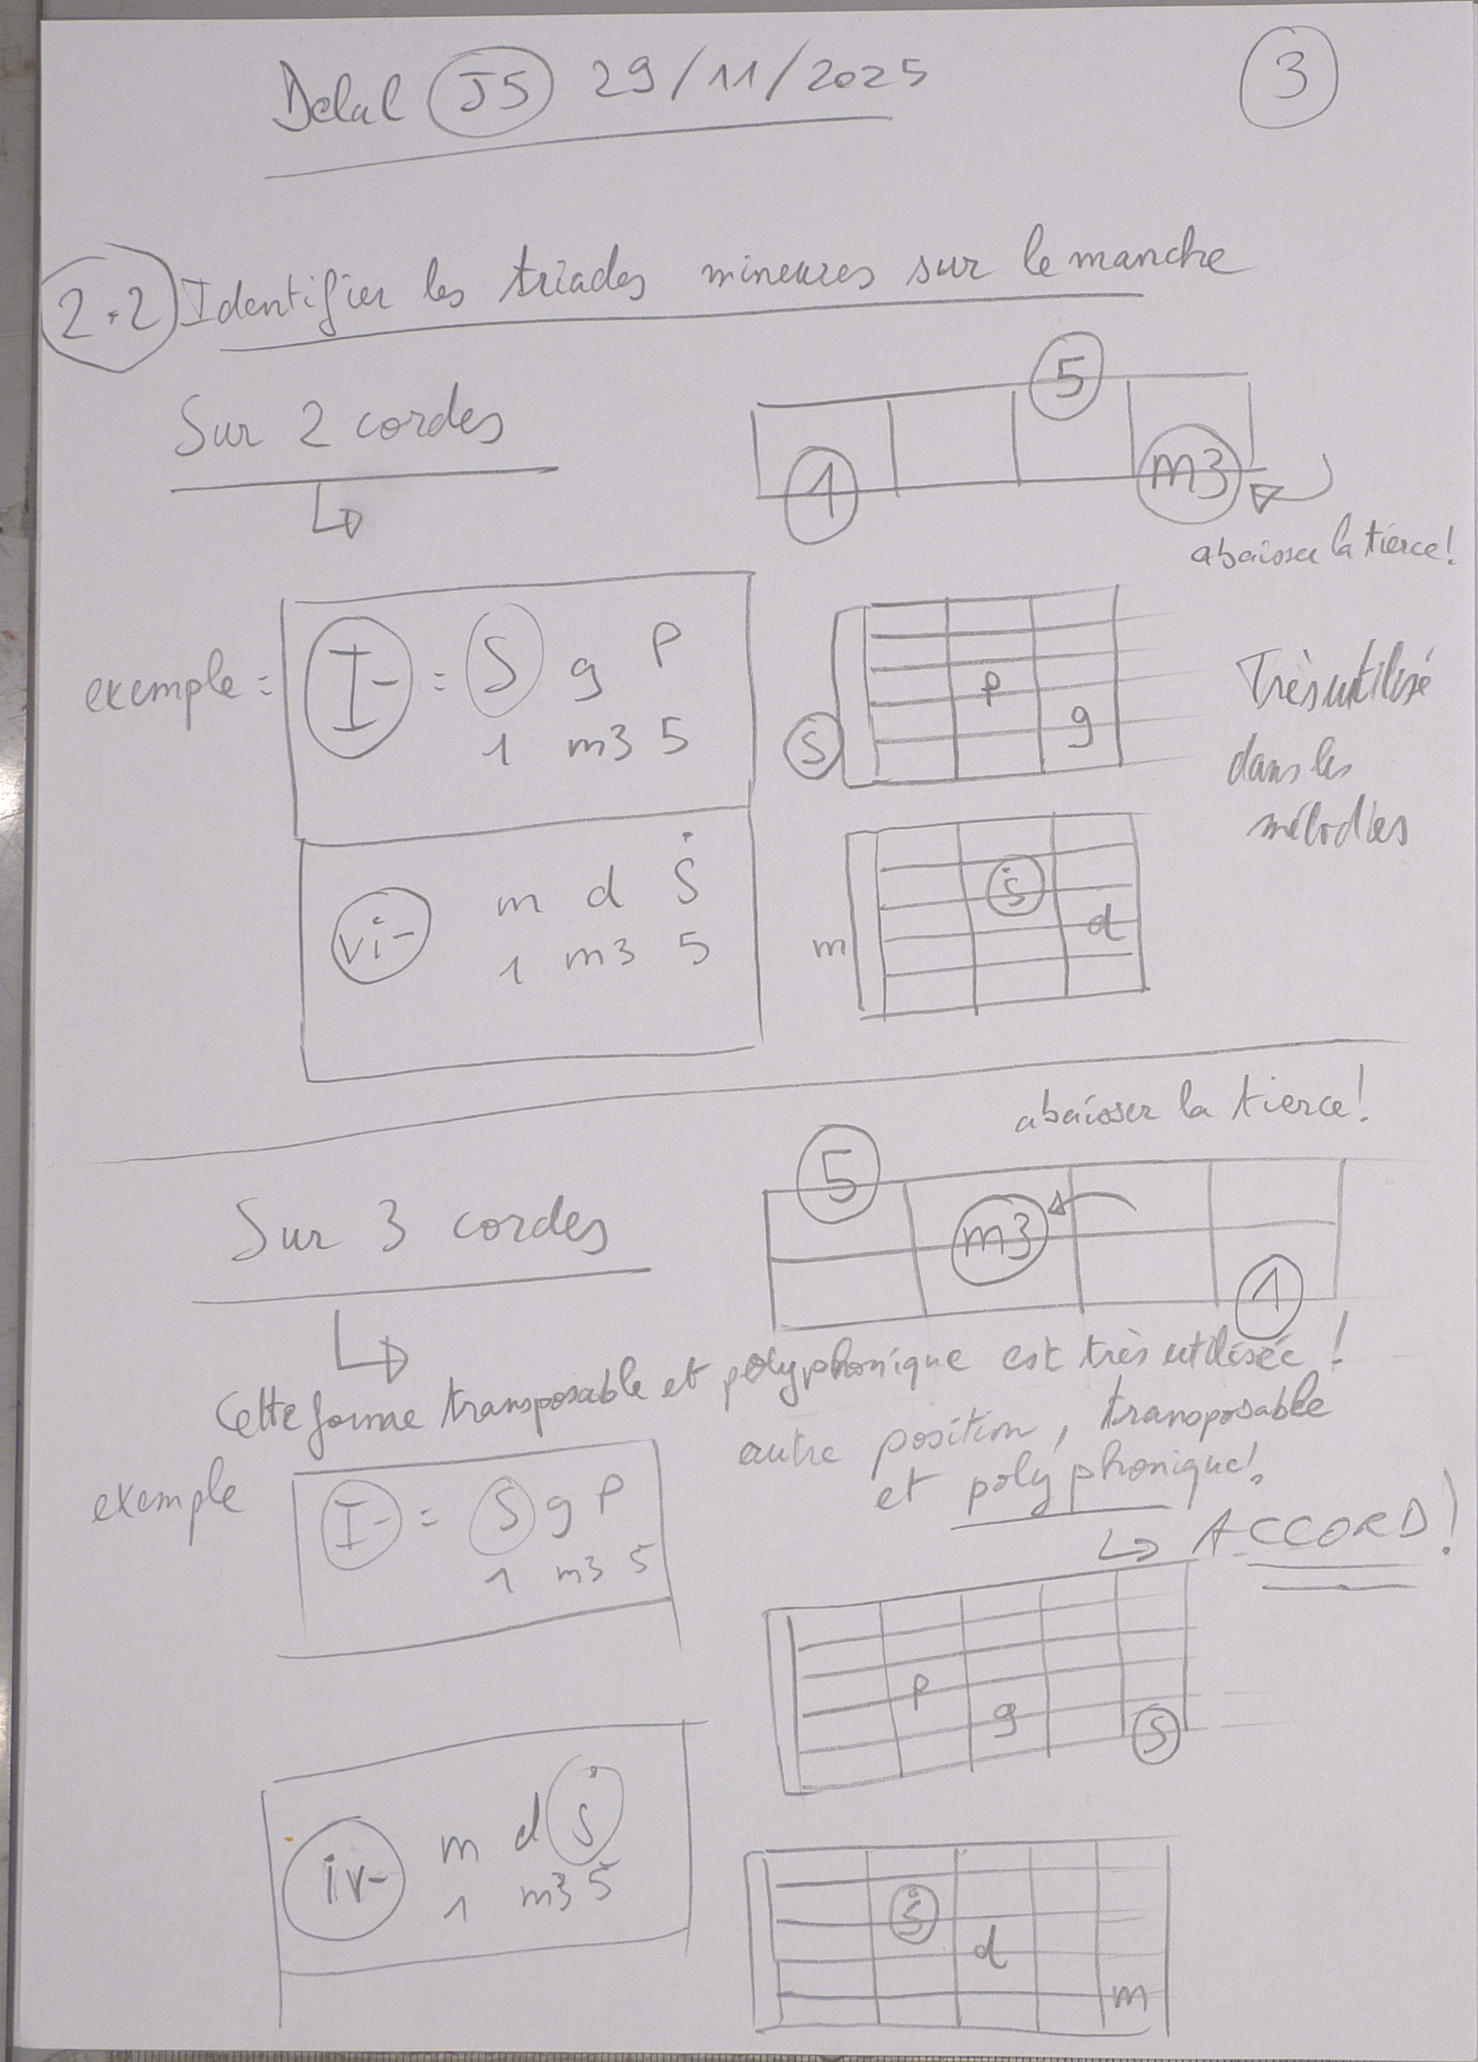 Delal J5 29/11/2025
3
2.2 Identifier les triades mineures sur le manche
Sur 2 cordes
5
1
m3
abaisser la tierce!
exemple = I- = S g P
1 m3 5
P
g
S
Très utilisé
dans les
mélodies
vi- m d Ṡ
1 m3 5
Ṡ
d
m
abaisser la tierce!
Sur 3 cordes
5
m3
1
Cette forme transposable et polyphonique est très utilisée!
autre position, transposable
et polyphonique!
↳ ACCORD!
exemple I- = S g P
1 m3 5
P
g
S
iv- m d Ṡ
1 m3 5
Ṡ
d
m